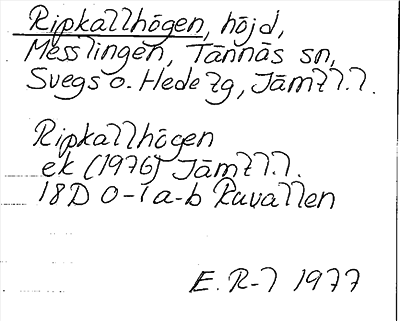 Ripkallhögen, höjd,
Messlingen, Tännäs sn,
Svegs o. Hede tg, Jämtl.l.
Ripkallhögen
ek (1976) Jämtl.l.
18D 0-1 a-b Ruvallen
E. R-l 1977